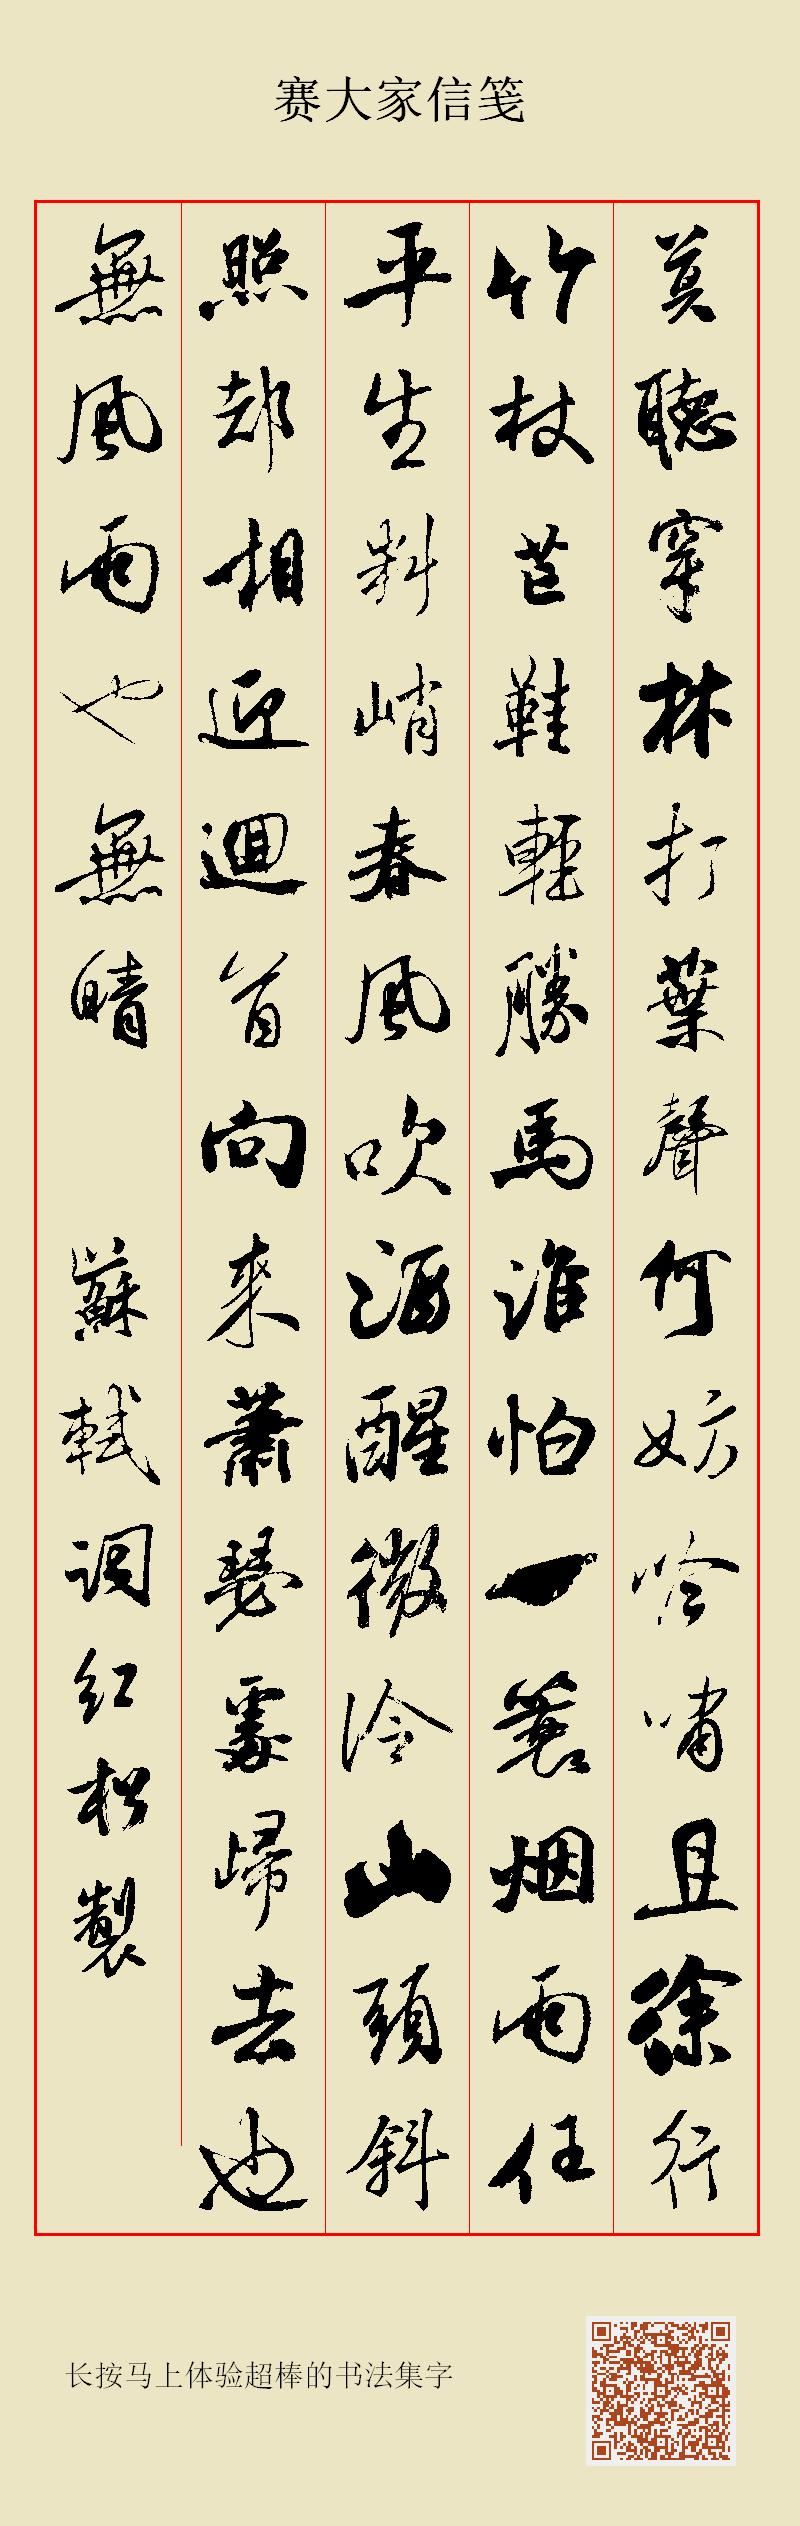 赛大家信笺
莫聽穿林打葉聲何妨吟嘯且徐行
竹杖芒鞋輕勝馬誰怕一蓑烟雨任
平生料峭春風吹酒醒微冷山頭斜
照却相迎迴首向來蕭瑟處歸去也
無風雨也無晴 蘇軾詞紅松製
长按马上体验超棒的书法集字